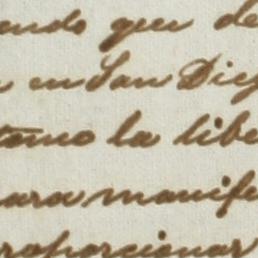 endo que de
en San Dieg
tomo la libe
para manife
proporcionar